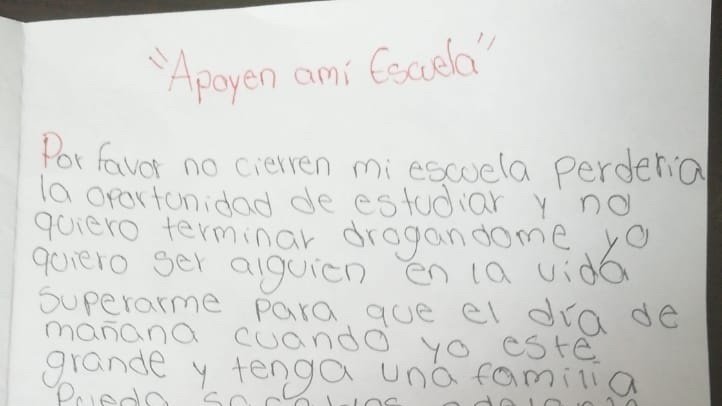 "Apoyen ami Escuela"
Por favor no cierren mi escuela perderia
la oportunidad de estudiar y no
quiero terminar drogandome yo
quiero ser alguien en la vida
superarme para que el día de
mañana cuando yo este
grande y tenga una familia
Pueda